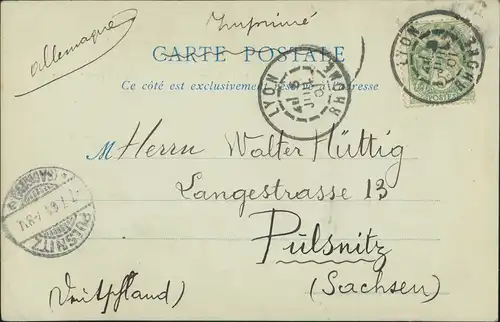 Imprimé
Allemagne
CARTE POSTALE
Ce côté est exclusivement réservé à l'adresse
LYON
RHÔNE
LYON
RHÔNE
M Herrn Walter Hüttig
Langestrasse 13
Pulsnitz
(Sachsen)
PULSNITZ